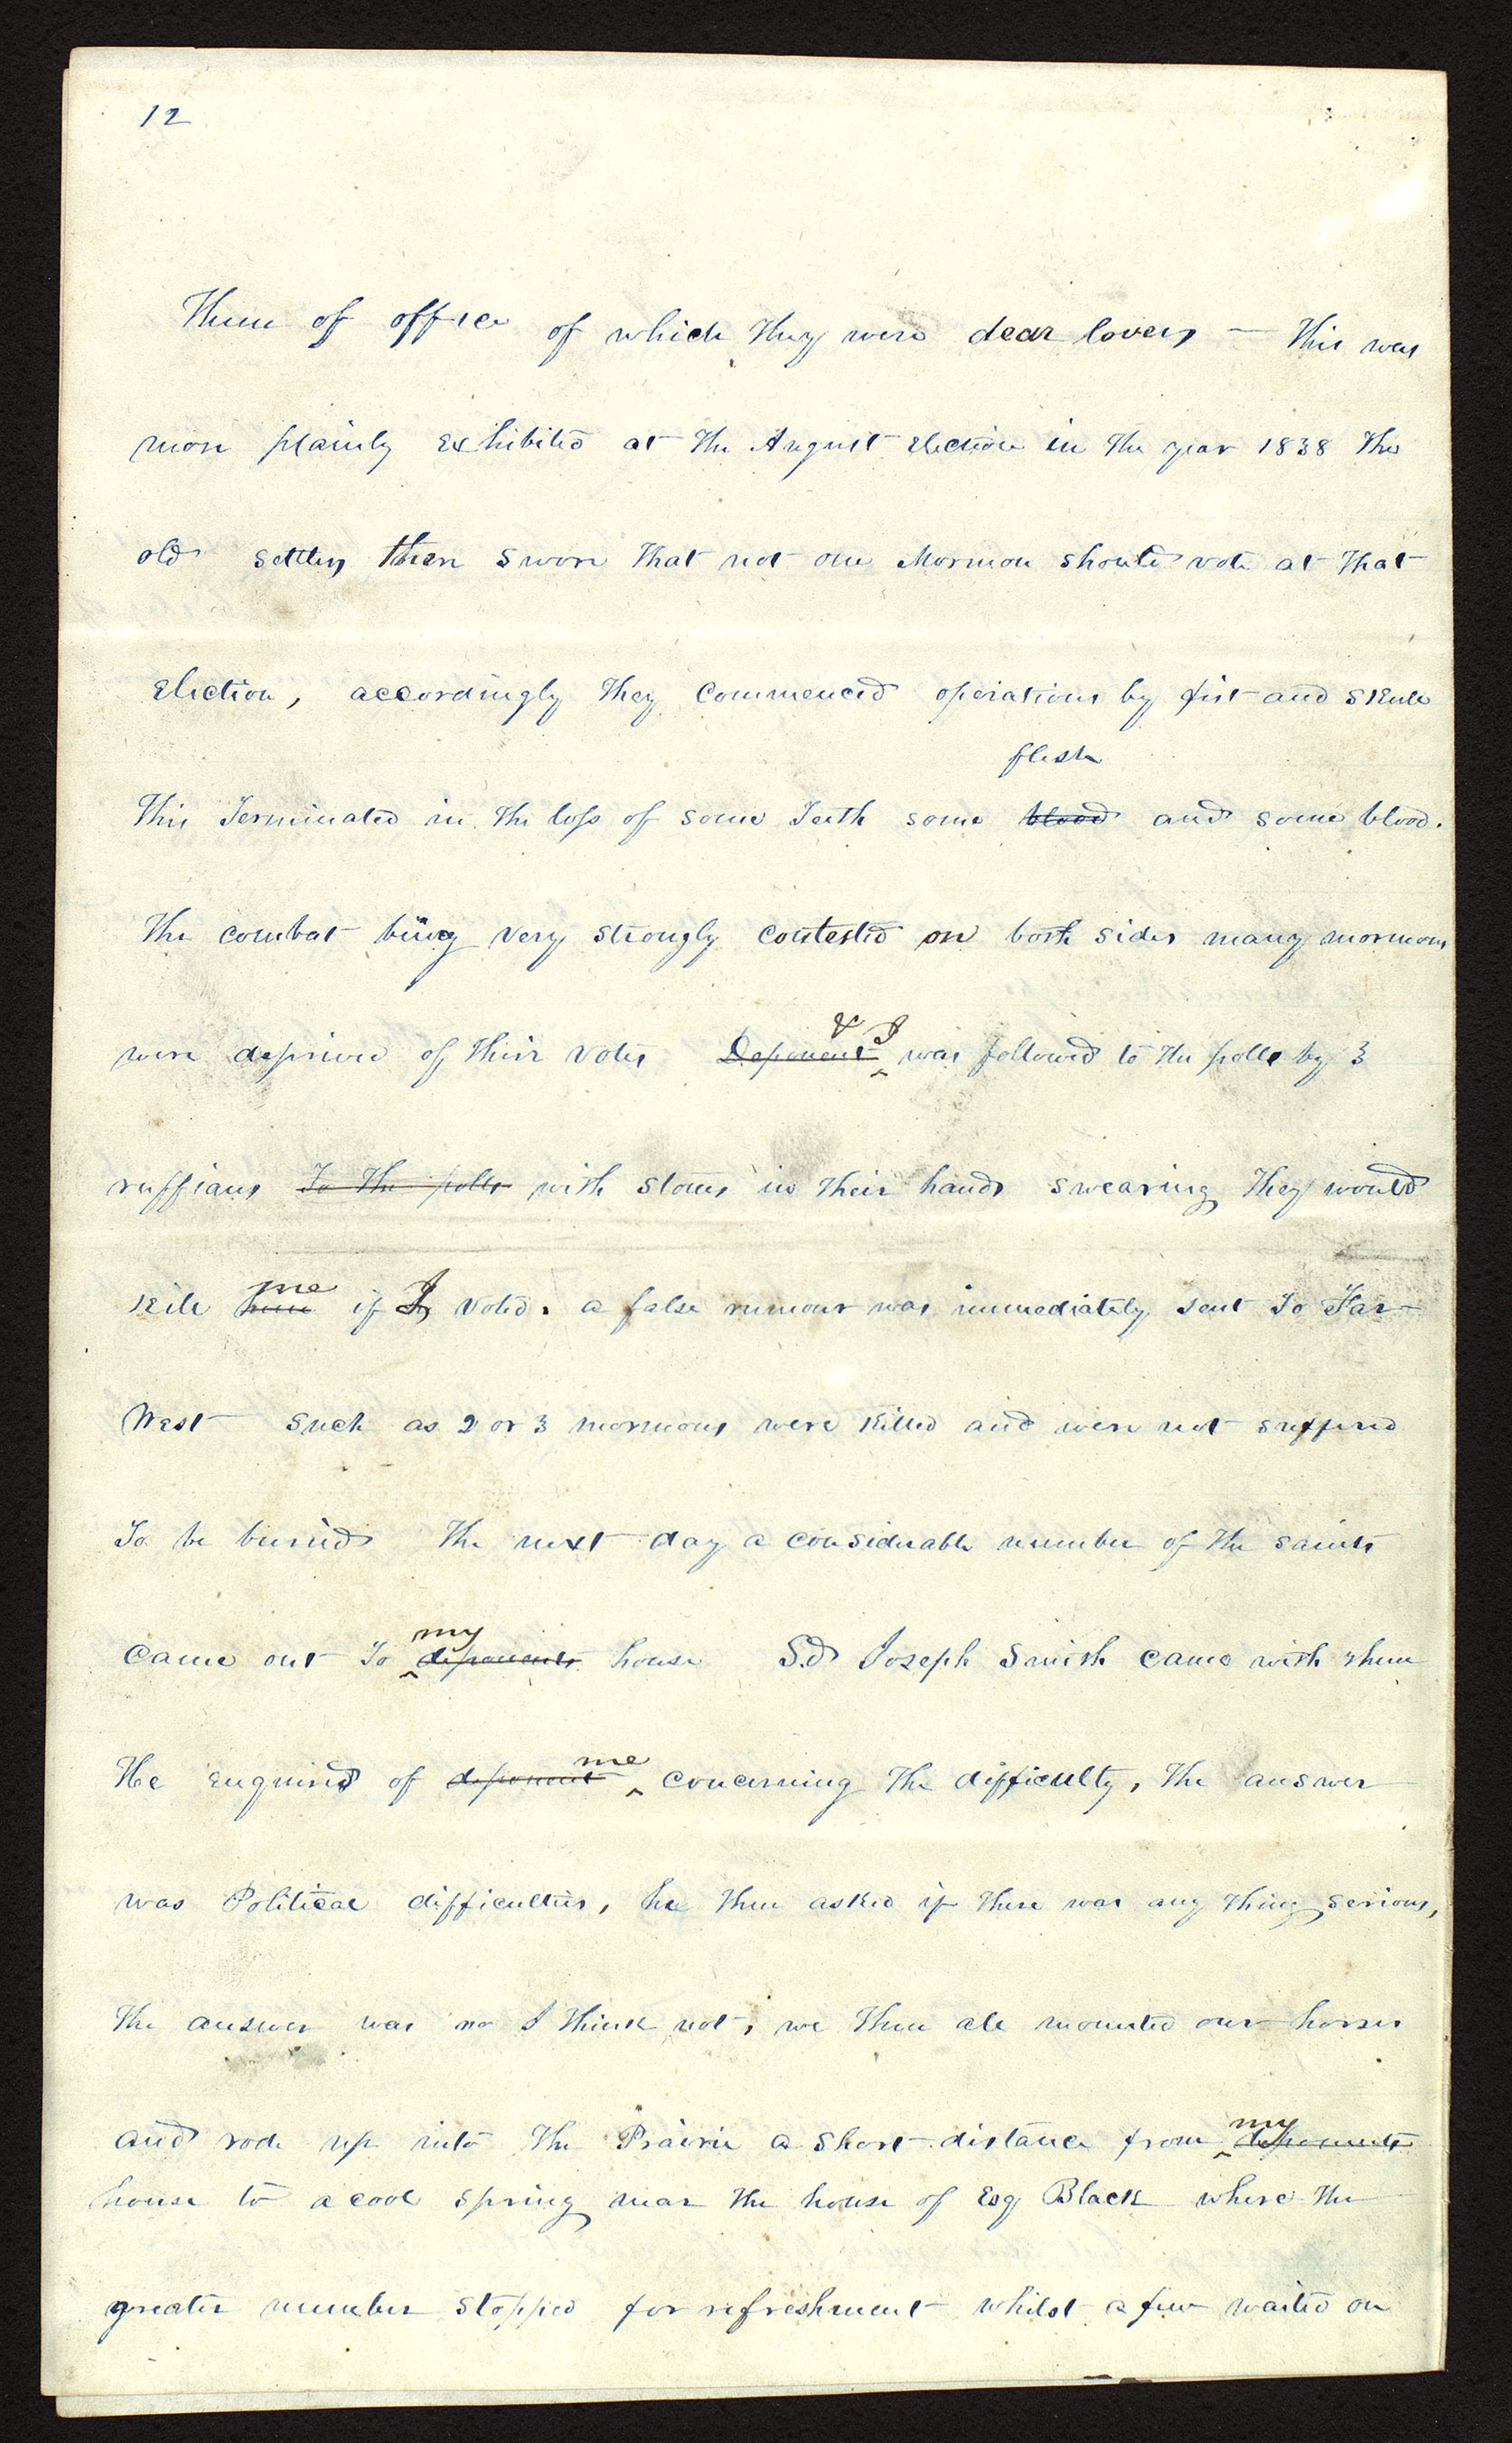 12
Them of office of which they were dear lovers — this was
more plainly Exhibited at the August Election in the year 1838 The
old settlers then swore that not one Mormon should vote at that
Election, accordingly they commenced operations by fist and skull
flesh
This Terminated in the loss of some Teeth some blood and some blood.
The combat being very strongly contested on both sides many mormons
& I
were deprived of their votes Deponent was followed to the polls by 3
ruffians To the polls with stones in their hands swearing they would
me
kill him if I voted. a false rumour was immediately sent to Far
West Such as 2 or 3 mormons were killed and were not suffered
To be buried The next day a considerable number of the saints
my
came out to deponents house Sd Joseph Smith came with them
me
He enquired of deponent concerning the difficulty, The answer
was Political difficulties, he then asked if there was any thing serious,
The answer was no I think not, we then all mounted our horses
my
and rode up into the Prairie a short distance from deponents
house to a cool spring near the house of Esq Black where the
greater number stopped for refreshment whilst a few waited on